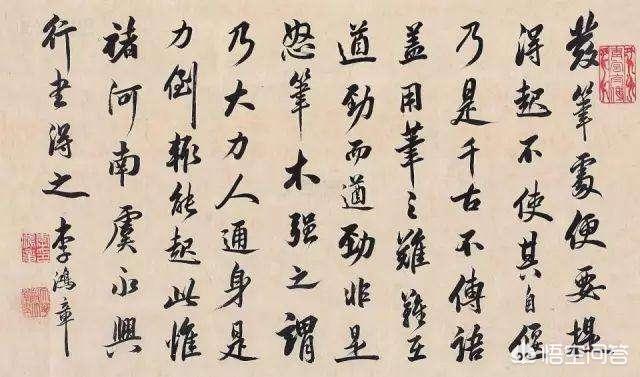 發筆處便要提
得起不使其自偃
乃是千古不傳語
蓋用筆之難難在
遒勁而遒勁非是
怒筆木强之謂
乃大力人通身是
力倒輒能起此惟
褚河南虞永興
行書得之 李鴻章
悟空问答